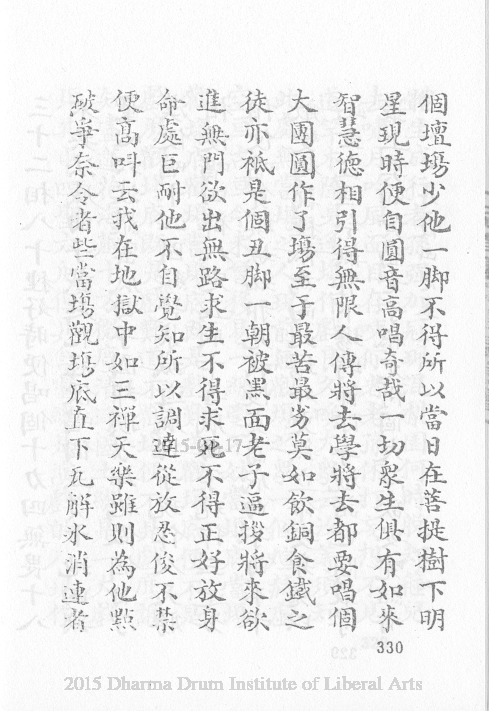 個壇場少他一脚不得所以當日在菩提樹下明
星現時便自圓音高唱奇哉一切衆生俱有如來
智慧德相引得無限人傳將去學將去都要唱個
大團圓作了場至于最苦最劣莫如飲銅食鐵之
徒亦祗是個丑脚一朝被黑面老子逼拶將來欲
進無門欲出無路求生不得求死不得正好放身
命處叵耐他不自覺知所以調達從放忍俊不禁
便高呌云我在地獄中如三禪天樂雖則為他㸃
破爭奈令者些當塲觀塲底直下瓦解氷消連者
330
2015 Dharma Drum Institute of Liberal Arts